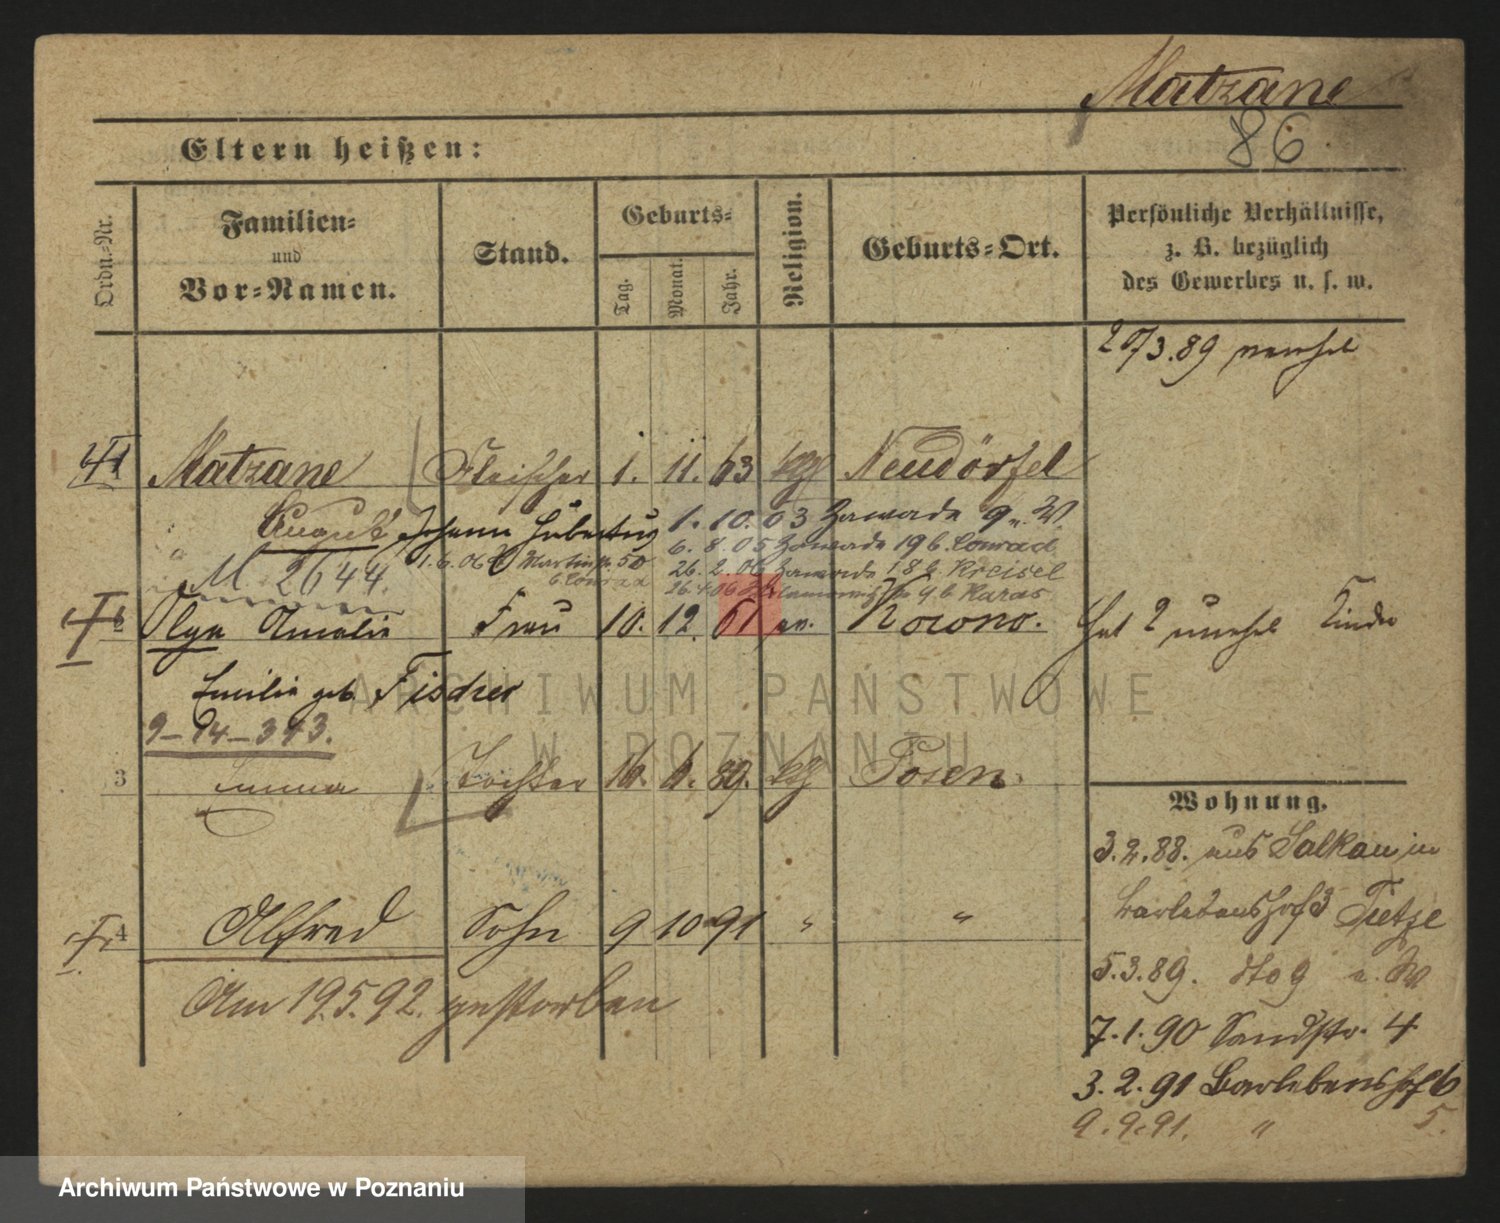 Matzane
86
Eltern heißen:
Ordn.-Nr.
Familien-
und
Vor-Namen.
Stand.
Geburts-
Tag.
Monat.
Jahr.
Religion.
Geburts-Ort.
Persönliche Verhältnisse,
z. B. bezüglich
des Gewerbes u. s. w.
20/3.89 verehel
Matzane Fleischer 1. 11. 63 kth Neudörfel
August Johann Hubertus 1. 10. 03 Zawade 9
6. 8. 05 Zawade 19 b. Conrad
1.6.06 Martinstr. 50
b. Conrad
26. 2. 06 Zawade 18 b. Kreisel
26.4.06 9 b. Karas
M. 2644.
Olga Amalie Frau 10. 12. 61 ev. Hat 2 unehel Kinder
Emilie geb. Fischer
9-94-343.
3 Emma Tochter 16. 6. 89. kth Posen
Wohnung.
3.2.88. aus Salkau in
Barlebenshof 3 Tietze
4 Alfred Sohn 9 10 91 " "
5.3.89. dto 9
Am 19.5.92. gestorben
7.1.90 Sandstr. 4
3.2.91 Barlebenshof 6
9.9.91. " 5.
ARCHIWUM PAŃSTWOWE
W POZNANIU
Archiwum Państwowe w Poznaniu